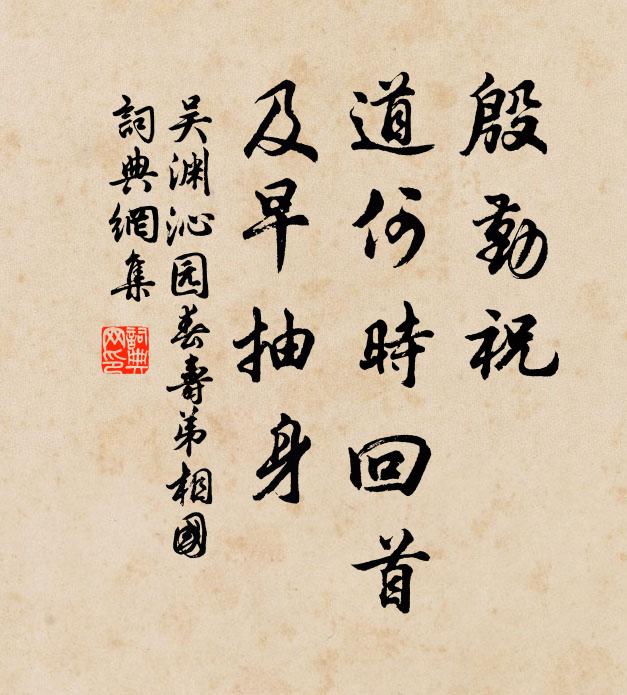 殷勤祝
道何時回首
及早抽身
吴渊沁园春壽弟相國
詞典網集
詞典网印